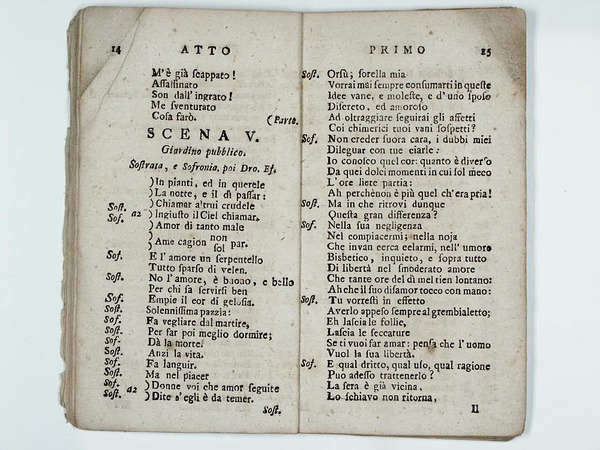 14
ATTO
M'è già scappato!
Assassinato
Son dall' ingrato!
Me sventurato
Cosa farò.
(Parte.
SCENA V.
Giardino pubblico.
Sostrata, e Sofronia, poi Dro. Ef.
)In pianti, ed in querele
)La notte, e il dì passar:
Sost. )Chiamar astrui crudele
Sof. a2 )Ingiusto il Ciel chiamar,
)Amor di tanto male
)Ame cagion non par.
sol
Sof. E l' amore un serpentello
Tutto sparso di velen.
Sost. No l' amore, è buono, e bello
Per chi sa servirsi ben
Sof. Empie il cor di gelosia.
Sost. Solennissima pazzia:
Sof. Fa vegliare dal martire,
Sost. Per far poi meglio dormire;
Sof. Dà la morte.
Sost. Anzi la vita.
Sof. Fa languir.
Sost. Ma nel piacer
Sof. a2 )Donne voi che amor seguite
Sost. )Dite s'egli è da temer.
Sost.
PRIMO
15
Sost. Orsù; sorella mia
Vorrai mai sempre consumarti in queste
Idee vane, e moleste, e d'uno sposo
Discreto, ed amoroso
Ad oltraggiare seguirai gli affetti
Coi chimerici tuoi vani sospetti?
Sof. Non creder suora cara, i dubbi miei
Dileguar con tue ciarle:
Io conosco quel cor: quanto è diverso
Da quei dolci momenti in cui sol meco
L'ore liete partia:
Ah perchè non è più quel ch'era pria!
Sost. Ma in che ritrovi dunque
Questa gran differenza?
Sof. Nella sua negligenza
Nel compiacermi; nella noja
Che invan cerca celarmi, nell' umore
Bisbetico, inquieto, e sopra tutto
Di libertà nel smoderato amore
Che tante ore del dì mel tien lontano:
Ah che il suo disamor tocco con mano:
Sost. Tu vorresti in effetto
Averlo appeso sempre al grembialetto;
Eh lascia le follie,
Lascia le seccature
Se ti vuoi far amar: pensa che l' uomo
Vuol la sua libertà.
Sof. E qual dritto, qual uso, qual ragione
Puo adesso trattenerlo?
La sera è già vicina,
Lo schiavo non ritorna,
Il